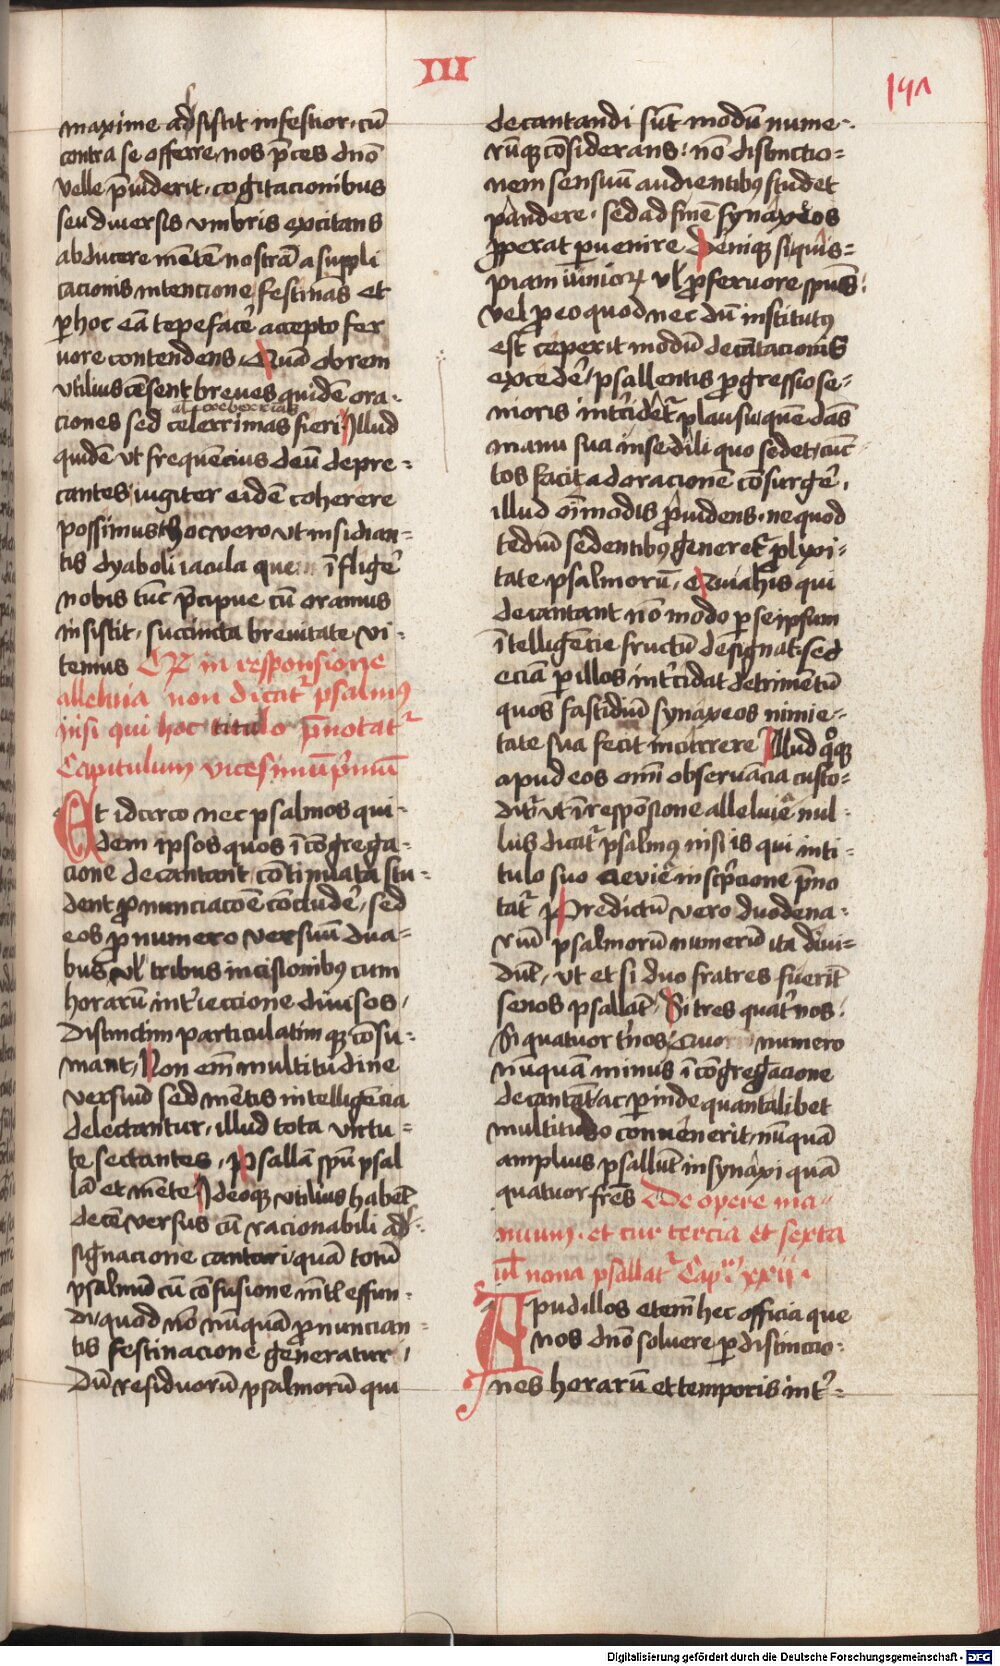 III
191
maxime adsistit infestior, cū
contra se offerre nos p̄ces dn̄o
velle p̄uiderit, cogitacionibus
seu diuersis vmbris excitans
abducere mētē nostrā a suppli
cacionis intencione festinās et
ꝑ hoc eā tepefacē accepto fer
uore contendens. Quā obrem
vtilius cēsent breues quidē ora-
al' creberrimas
ciones sed celerrimas fieri Illud
quidē vt frequēcius deū depre-
cantes iugiter eidē coherere
possimus hoc vero vt insidian-
tis dyaboli iacula que īfligē
nobis tūc p̄cipue cū oramus
insistit, succincta breuitate vi-
temus Qꝫ in responsione
alleluia non dicat᷑ psalmꝰ
nisi qui hoc titulo p̄notat᷑
Capitulum vicesimūprimū
Et idcirco nec psalmos qui-
dem ipsos quos ī cōgrega-
cione decantant cōtinuata stu-
dent ꝓnunciacōe cōcludē, sed
eos ꝓ numero versuū dua-
bus vl' tribus incisionibꝰ cum
horarū int'ieccione diuisos,
distinctim particulatim qꝫ cōsu-
mant, Non em̄ multitudine
versuū sed mētis intelligēcia
delectantur, illud tota virtu-
te sectantes, Psallā spū psal
lā et mēte Ideoqꝫ vtilius habēt
decē versus cū racionabili assi-
signacione cantari quā totū
psalmū cū cōfusione mētꝭ effun-
di, quod nō nūquā ꝓnuncian-
tis festinacione generatur,
Dū residuorū psalmorū qui
decantandi sūt modū nume-
rūqꝫ cōsiderans, nō distinctio-
nem sensuū audientibꝰ studet
pandere, sed ad finē synaxeos
ꝓperat ꝑuenire Deniqꝫ si quis-
piam iūnioꝝ vl' ꝓ feruore spūs,
vel ꝓ eo quod nec dū institutꝰ
est ceperit modū decātacionis
excedē, psallentis ꝓgressio se-
nioris int'cidet᷑ plausu quē dās
manu sua in sedili quo sedet, cūc-
tos facit ad oracionē cōsurgē,
illud oīmodis ꝓuidens, ne quod
tediū sedentibꝰ generet᷑ ꝓlyxi-
tate psalmorū, Quia his qui
decantant nō modo ꝑ se ipsum
ītelligēcie fructū designat sed
eciā ꝑ illos int'cidat detrimētū
quos fastidiū synaxeos nimie-
tate sua fecit incurrere Illud qͦqꝫ
apud eos omī obseruācia custo-
dit᷑, vt ī respōsione alleluiē nul-
lus dicat᷑ psalmꝰ nisi is qui inti-
tulo suo aeuiē inscripcione p̄no
tat᷑ Predictū vero duodena-
riū psalmorū numerū ita diui-
dūt, vt et si duo fratres fuerīt
senos psallāt, Si tres quat'nos,
Si quatuor t'nos, Quo numero
nūquā minus ī cōgregacione
decantāt, ac ꝑinde quantalibet
multitudo conuenerit, nūquā
amplius psallūt in synaxi quā
quatuor fr̄es De opere ma-
nuum, et cur tercia et sexta
vl' nona psallat᷑ Capᵐ xxii
Apud illos etem̄ hec officia que
nos dn̄o soluere ꝑ distinccio-
nes horarū et temporis int'-
Digitalisierung gefördert durch die Deutsche Forschungsgemeinschaft - DFG